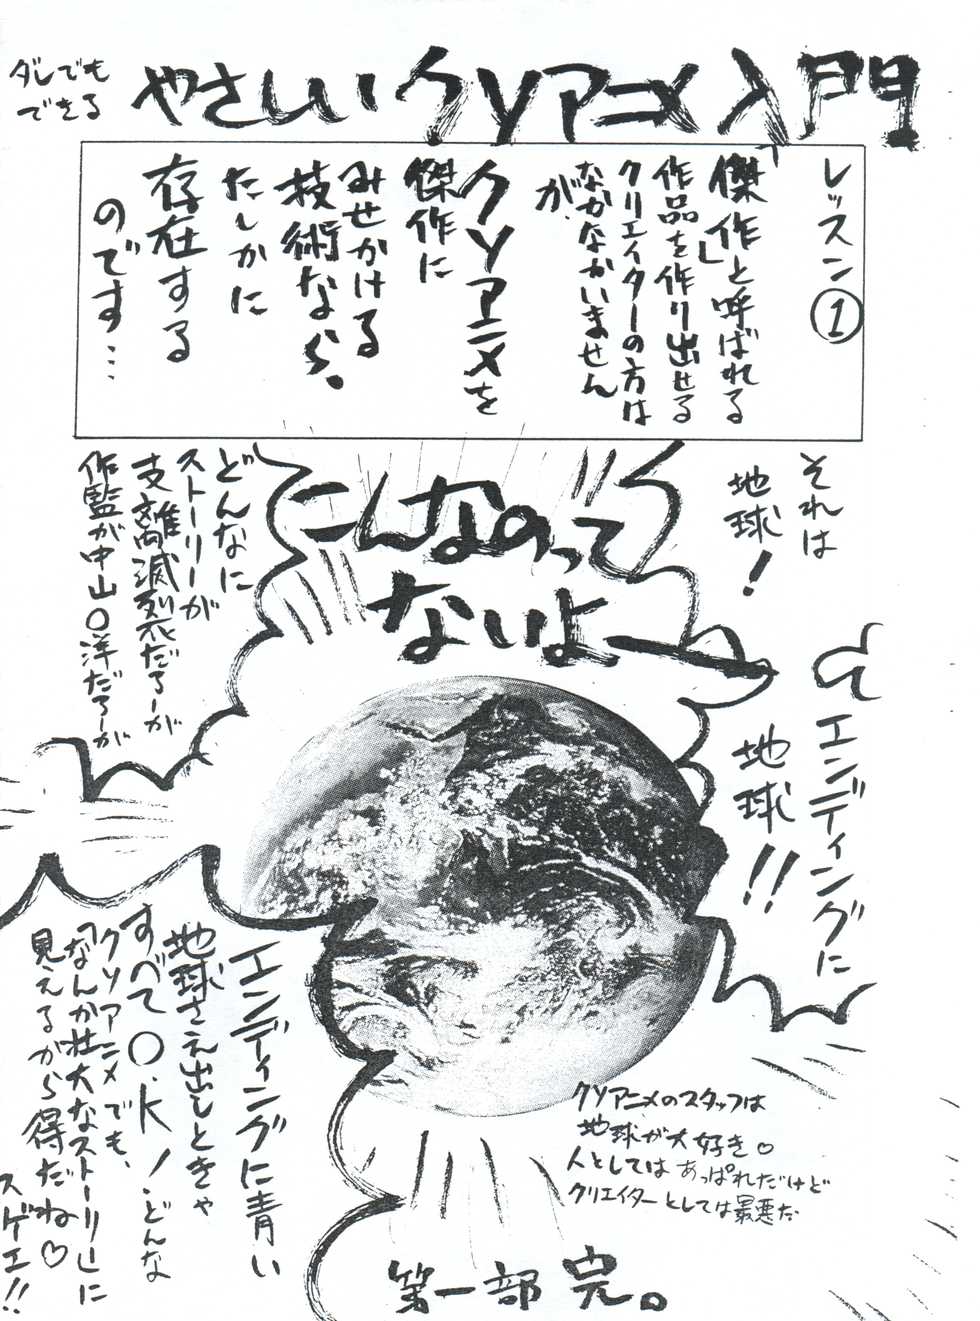 ダレでも
できる
やさしいクソアニメ入門
レッスン①
「傑作」と呼ばれる
作品を作り出せる
クリエイターの方は
なかなかいません
が、
クソアニメを
傑作に
みせかける
技術なら、
たしかに
存在する
のです…
それは
地球！
こんなのって
ないよー
どんなに
ストーリーが
支離滅裂だろーが
作監が中山〇洋だろーが
エンディングに
地球！！
エンディングに青い
地球さえ出しときゃ
すべてO.K！どんな
クソアニメでも、
「なんか壮大なストーリー」に
見えるから得だね♡
スゲエ！！
クソアニメのスタッフは
地球が大好き♡
人としてはあっぱれだけど
クリエイターとしては最悪だ
第一部 完。